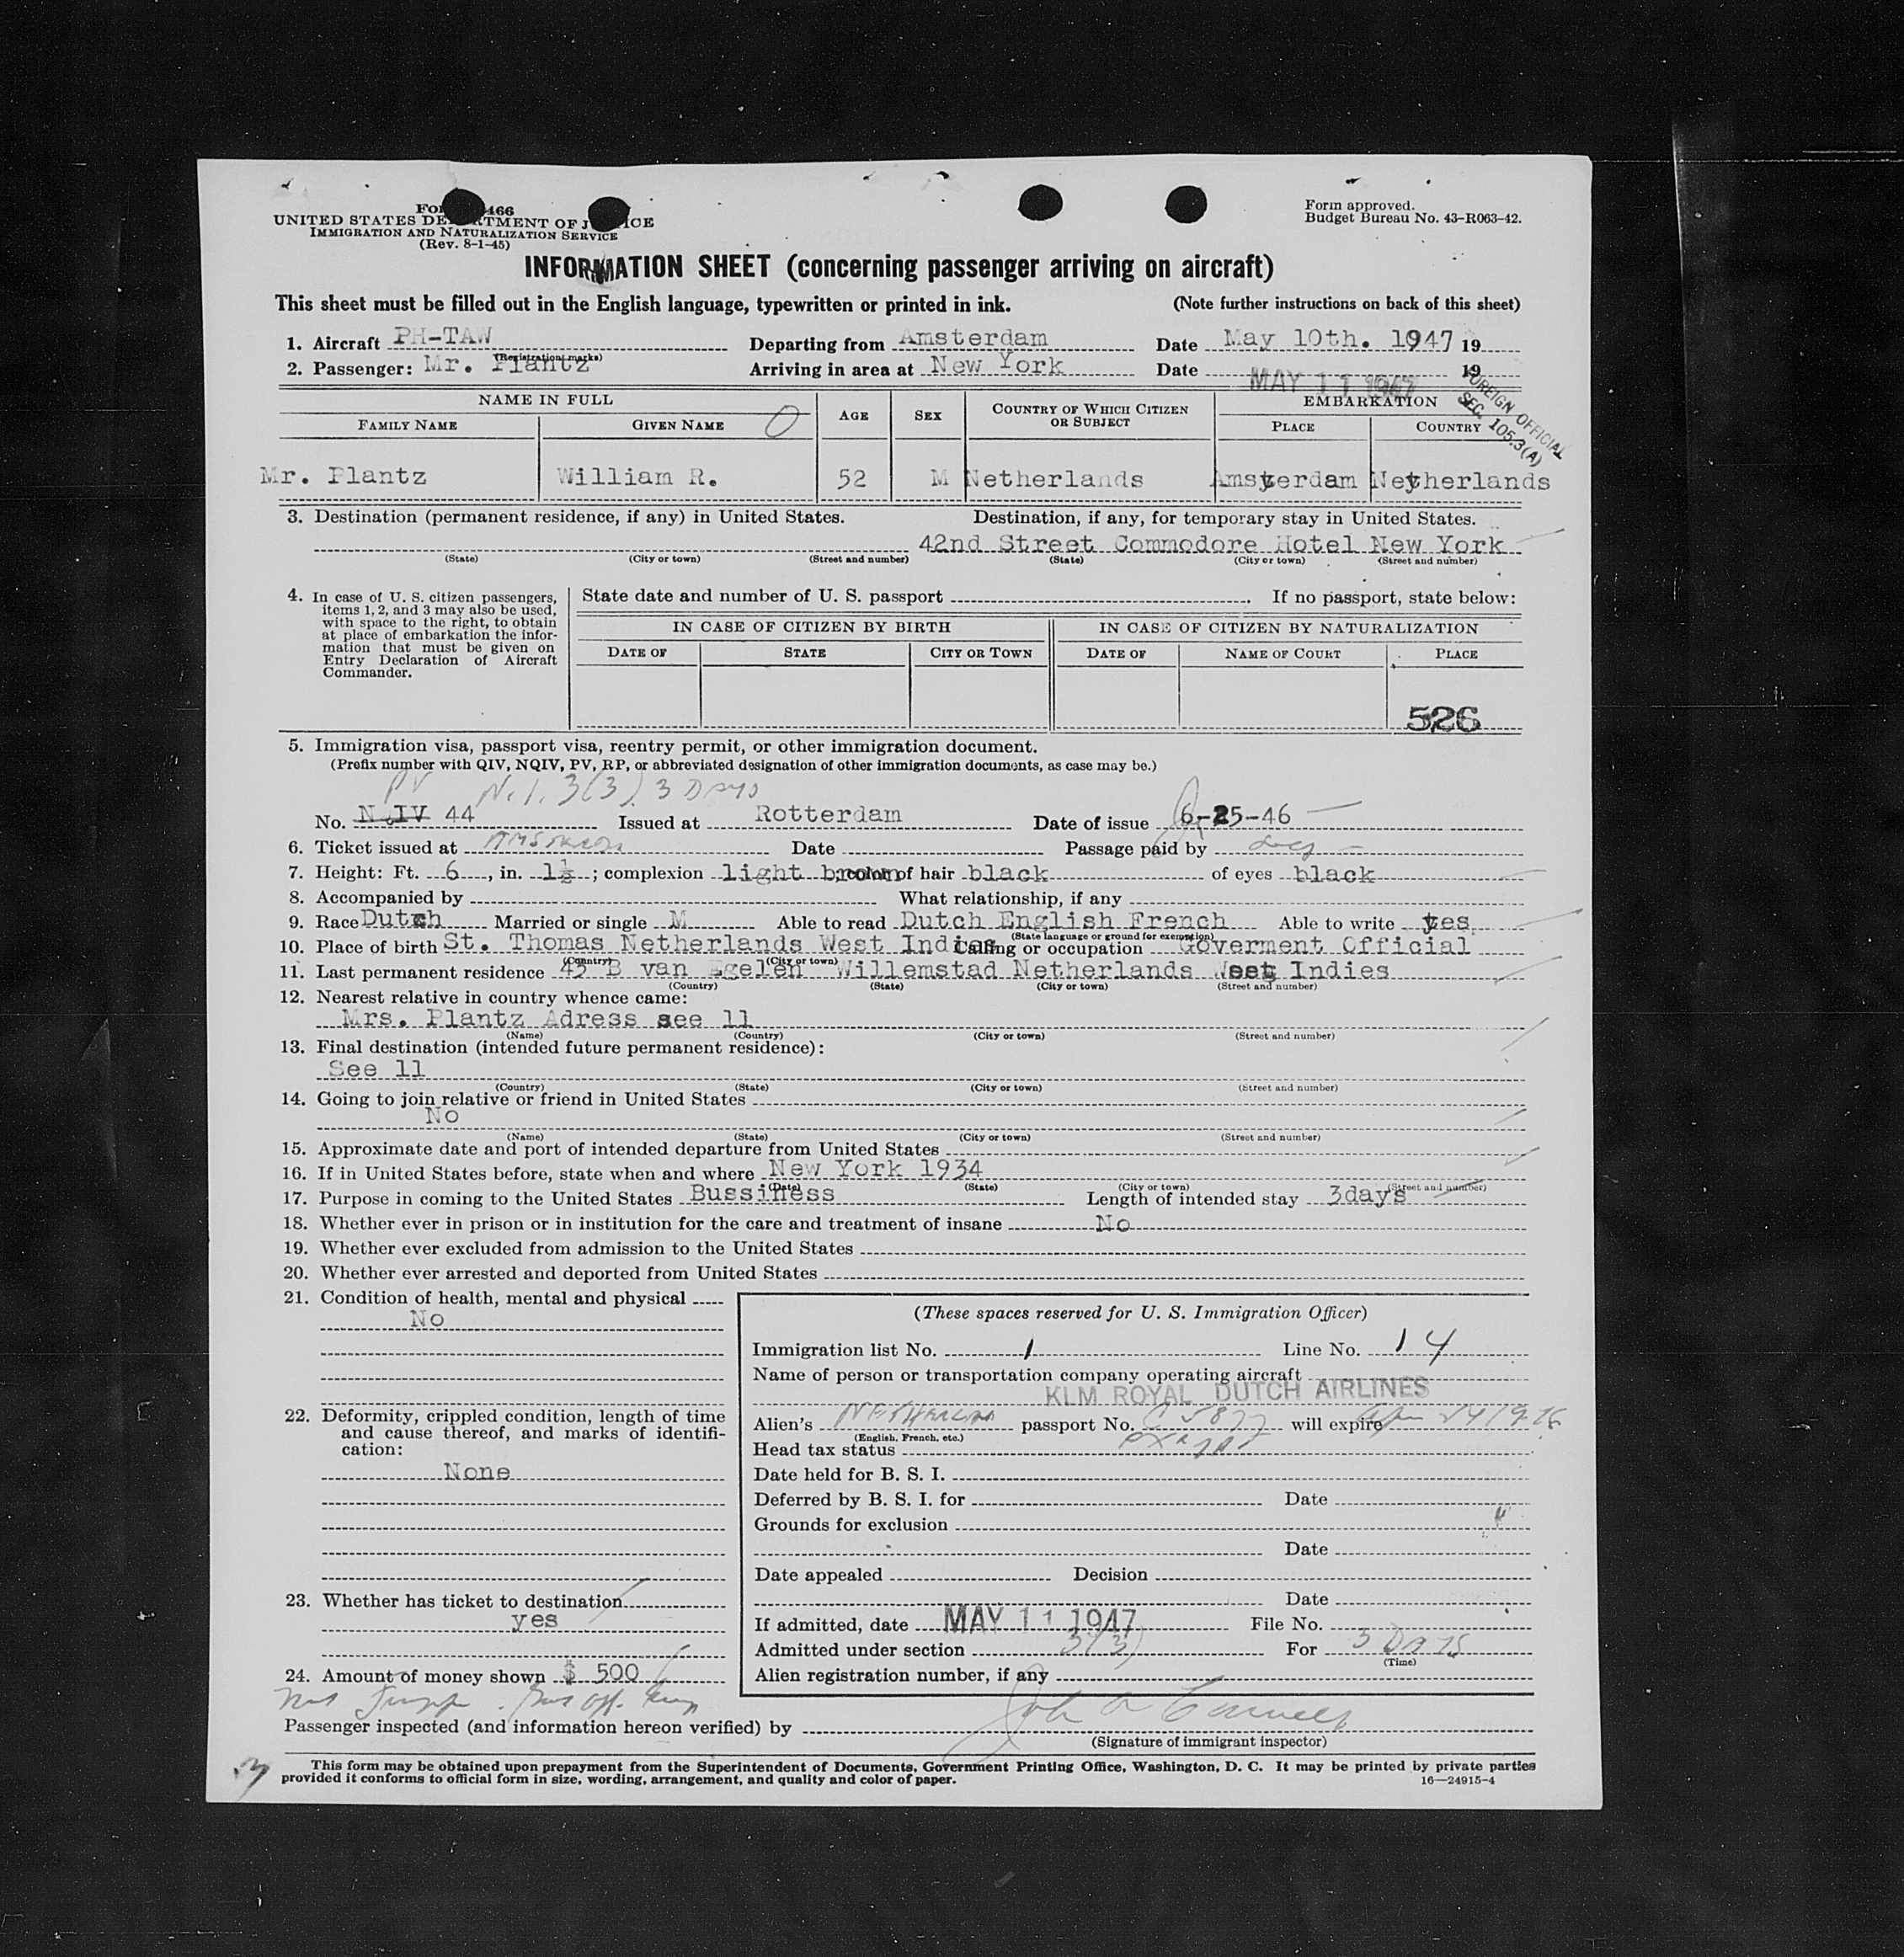 UNITED STATES DEPARTMENT OF JUSTICE
IMMIGRATION AND NATURALIZATION SERVICE
(Rev. 8-1-45)
Form approved.
Budget Bureau No. 43-R063-42.
INFORMATION SHEET (concerning passenger arriving on aircraft)
This sheet must be filled out in the English language, typewritten or printed in ink. (Note further instructions on back of this sheet)
1. Aircraft PH-TAW Departing from Amsterdam Date May 10th. 1947 19
(Registration marks)
2. Passenger: Mr. Plantz Arriving in area at New York Date MAY 11 1947 19
FOREIGN OFFICIAL
SEC. 105.3(A)
NAME IN FULL AGE SEX COUNTRY OF WHICH CITIZEN OR SUBJECT EMBARKATION
FAMILY NAME GIVEN NAME PLACE COUNTRY
Mr. Plantz William R. 52 M Netherlands Amsterdam Netherlands
3. Destination (permanent residence, if any) in United States. Destination, if any, for temporary stay in United States.
42nd Street Commodore Hotel New York
(State) (City or town) (Street and number) (State) (City or town) (Street and number)
4. In case of U. S. citizen passengers, items 1, 2, and 3 may also be used, with space to the right, to obtain at place of embarkation the information that must be given on Entry Declaration of Aircraft Commander.
State date and number of U. S. passport . If no passport, state below:
IN CASE OF CITIZEN BY BIRTH IN CASE OF CITIZEN BY NATURALIZATION
DATE OF STATE CITY OR TOWN DATE OF NAME OF COURT PLACE
526
5. Immigration visa, passport visa, reentry permit, or other immigration document.
(Prefix number with QIV, NQIV, PV, RP, or abbreviated designation of other immigration documents, as case may be.)
PV 3(3) 3 Days
No. N.IV 44 Issued at Rotterdam Date of issue 6-25-46
6. Ticket issued at Date Passage paid by
7. Height: Ft. 6, in. 1½; complexion light brown; color of hair black of eyes black
8. Accompanied by What relationship, if any
9. Race Dutch Married or single M Able to read Dutch English French Able to write yes
(State language or ground for exemption)
10. Place of birth St. Thomas Netherlands West Indies Calling or occupation Goverment Official
(Country) (City or town)
11. Last permanent residence 45 B van Egelen Willemstad Netherlands West Indies
(Country) (State) (City or town) (Street and number)
12. Nearest relative in country whence came:
Mrs. Plantz Adress see 11
(Name) (Country) (City or town) (Street and number)
13. Final destination (intended future permanent residence):
See 11
(Country) (State) (City or town) (Street and number)
14. Going to join relative or friend in United States
No
(Name) (State) (City or town) (Street and number)
15. Approximate date and port of intended departure from United States
16. If in United States before, state when and where New York 1934
(Date) (State) (City or town) (Street and number)
17. Purpose in coming to the United States Bussiness Length of intended stay 3days
18. Whether ever in prison or in institution for the care and treatment of insane No
19. Whether ever excluded from admission to the United States
20. Whether ever arrested and deported from United States
21. Condition of health, mental and physical
No
22. Deformity, crippled condition, length of time and cause thereof, and marks of identification:
None
23. Whether has ticket to destination
yes
24. Amount of money shown $ 500
(These spaces reserved for U. S. Immigration Officer)
Immigration list No. 1 Line No. 14
Name of person or transportation company operating aircraft
KLM ROYAL DUTCH AIRLINES
Alien's passport No. will expire
(English, French, etc.)
Head tax status
Date held for B. S. I.
Deferred by B. S. I. for Date
Grounds for exclusion
Date
Date appealed Decision
Date
If admitted, date MAY 11 1947 File No.
Admitted under section 3(3) For 3 Days
(Time)
Alien registration number, if any
Passenger inspected (and information hereon verified) by
(Signature of immigrant inspector)
This form may be obtained upon prepayment from the Superintendent of Documents, Government Printing Office, Washington, D. C. It may be printed by private parties
provided it conforms to official form in size, wording, arrangement, and quality and color of paper. 16—24915-4